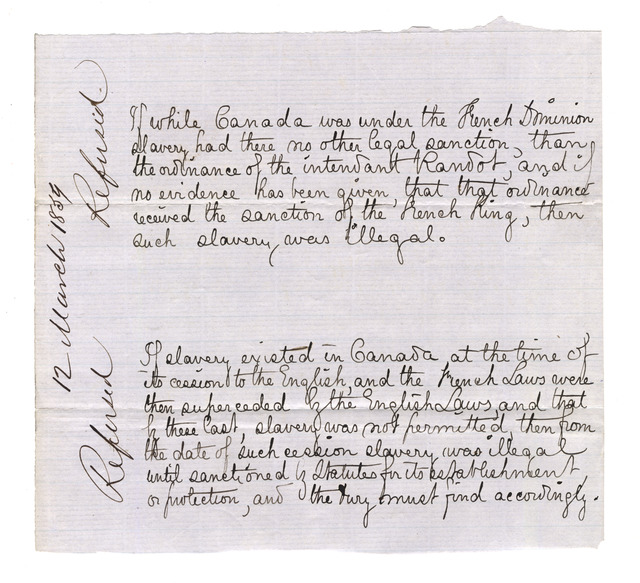 If while Canada was under the French Dominion
slavery had there no other legal sanction, than
the ordinance of the intendant Raudot, and if
no evidence has been given, that that ordinance
received the sanction of the French King, then
such slavery, was illegal.
Refused.
12 March 1859
If slavery existed in Canada at the time of
its cession to the English, and the French Laws were
then superceded by the English Laws, and that
by these last, slavery was not permitted, then from
the date of such cession slavery was illegal
until sanctioned by Statutes for its establishment
or protection, and the Jury must find accordingly.
Refused